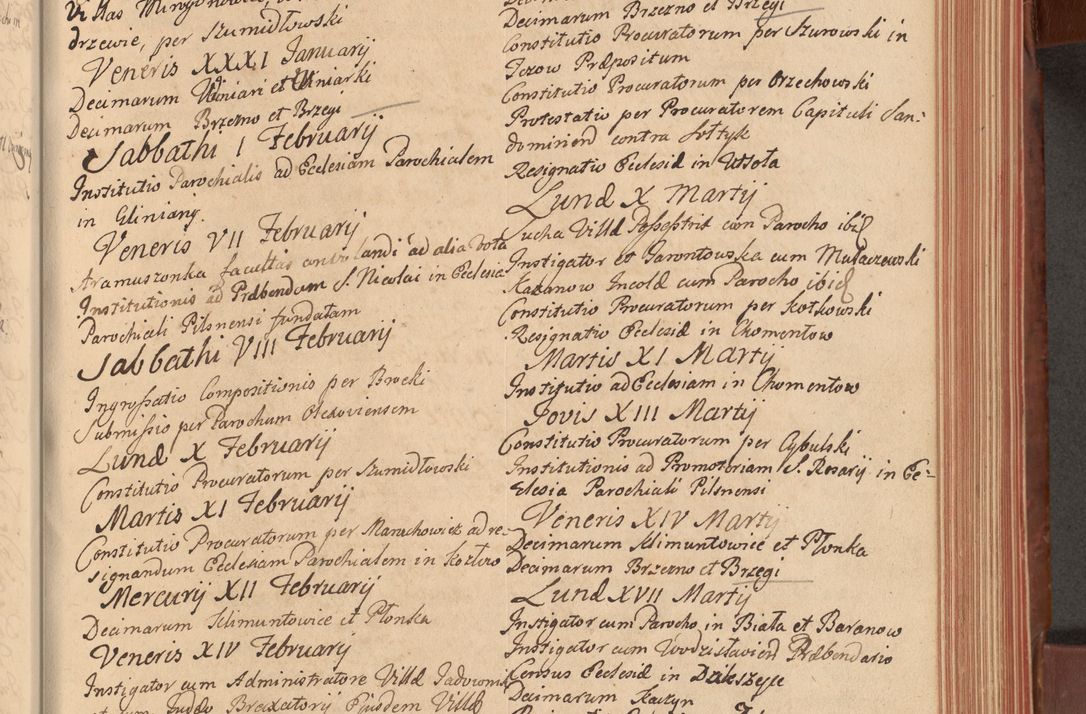 drzewie, per Szumidłowski
Veneris XXXI Januarij
Decimarum Winiari et Winiarki
Decimarum Brzezno et Brzegi
Sabbathi I Februarij
Institutio Parochialis ad Ecclesiam Parochialem
in Gliniany.
Veneris VII Februarij
facultas ad alia vota
Institutionis ad Præbendam S. Nicolai in Ecclesia
Parochiali Pilsnensi fundatam
Sabbathi VIII Februarij
Ingrossatio Compositionis per Brocki
Submissio per Parochum Olexoviensem
Lunæ X Februarij
Constitutio Procuratorum per Szumidłowski
Martis XI Februarij
Constitutio Procuratorum per ad re-
signandum Ecclesiam Parochialem in Kozłow
Mercurij XII Februarij
Decimarum Klimuntowice et Płonka
Veneris XIV Februarij
Instigator cum Administratore Villæ
Ejusdem Villæ
Decimarum Brzezno et Brzegi
Constitutio Procuratorum per Szurowski in
Jezow Præpositum
Constitutio Procuratorum per Orzechowski
Protestatio per Procuratorem Capituli San-
domirien contra Sołtyk
Resignatio Ecclesiæ in Wsola
Lunæ X Martij
Sucha Villæ Possestrix cum Parocho ibid
Instigator et Garontowska cum Małaczewski
Kazanow Incolæ cum Parocho ibid
Constitutio Procuratorum per Kotkowski
Resignatio Ecclesiæ in Chomentow
Martis XI Martij
Institutio ad Ecclesiam in Chomentow
Jovis XIII Martij
Constitutio Procuratorum per Cybulski
Institutionis ad Promotoriam S. Rosarij in Ec-
clesia Parochiali Pilsnensi
Veneris XIV Martij
Decimarum Klimuntowice et Płonka
Decimarum Brzezno et Brzegi
Lunæ XVII Martij
Instigator cum Parocho in Biała et Baranow
Instigator cum Wodzisławien Præbendario
Census Ecclesiæ in
Decimarum Kaczyn